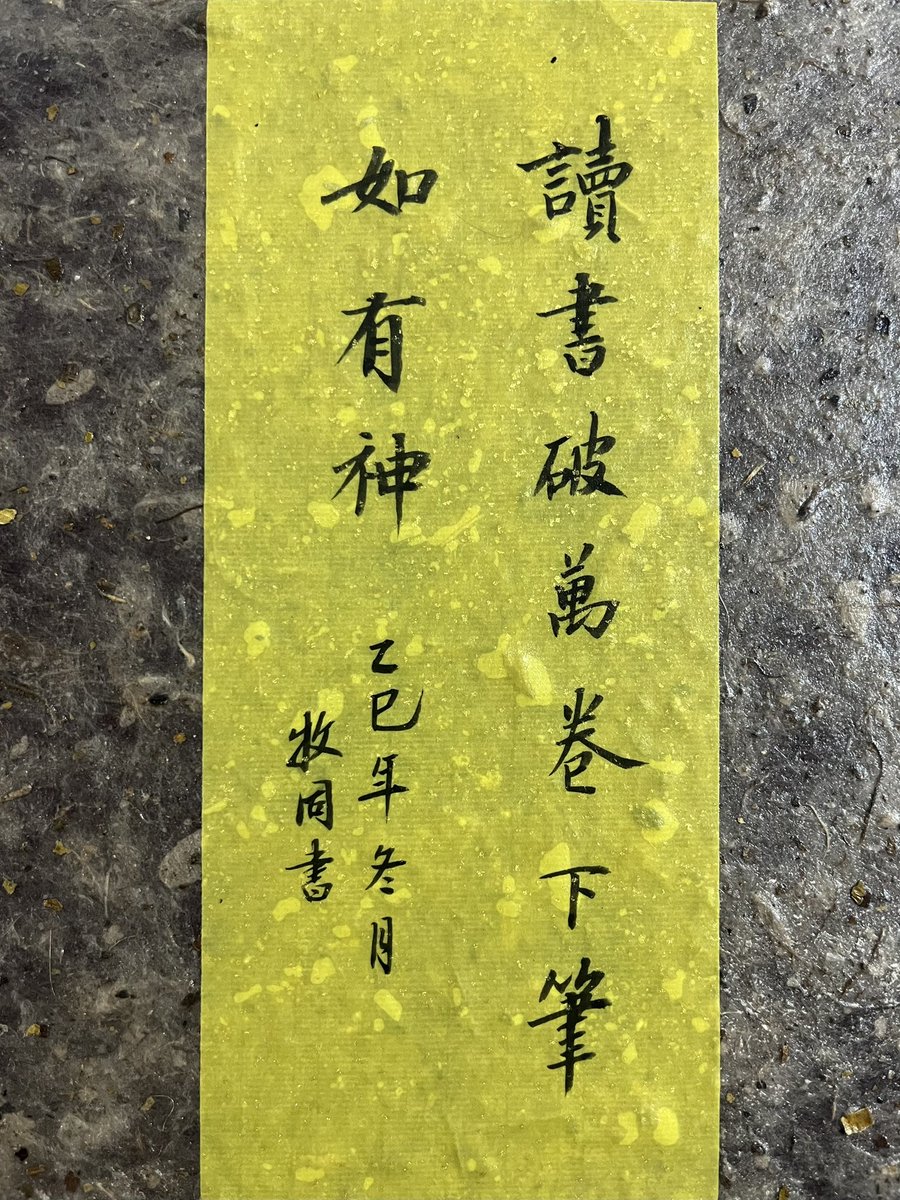 讀書破萬卷下筆
如有神
乙巳年冬月
牧同書